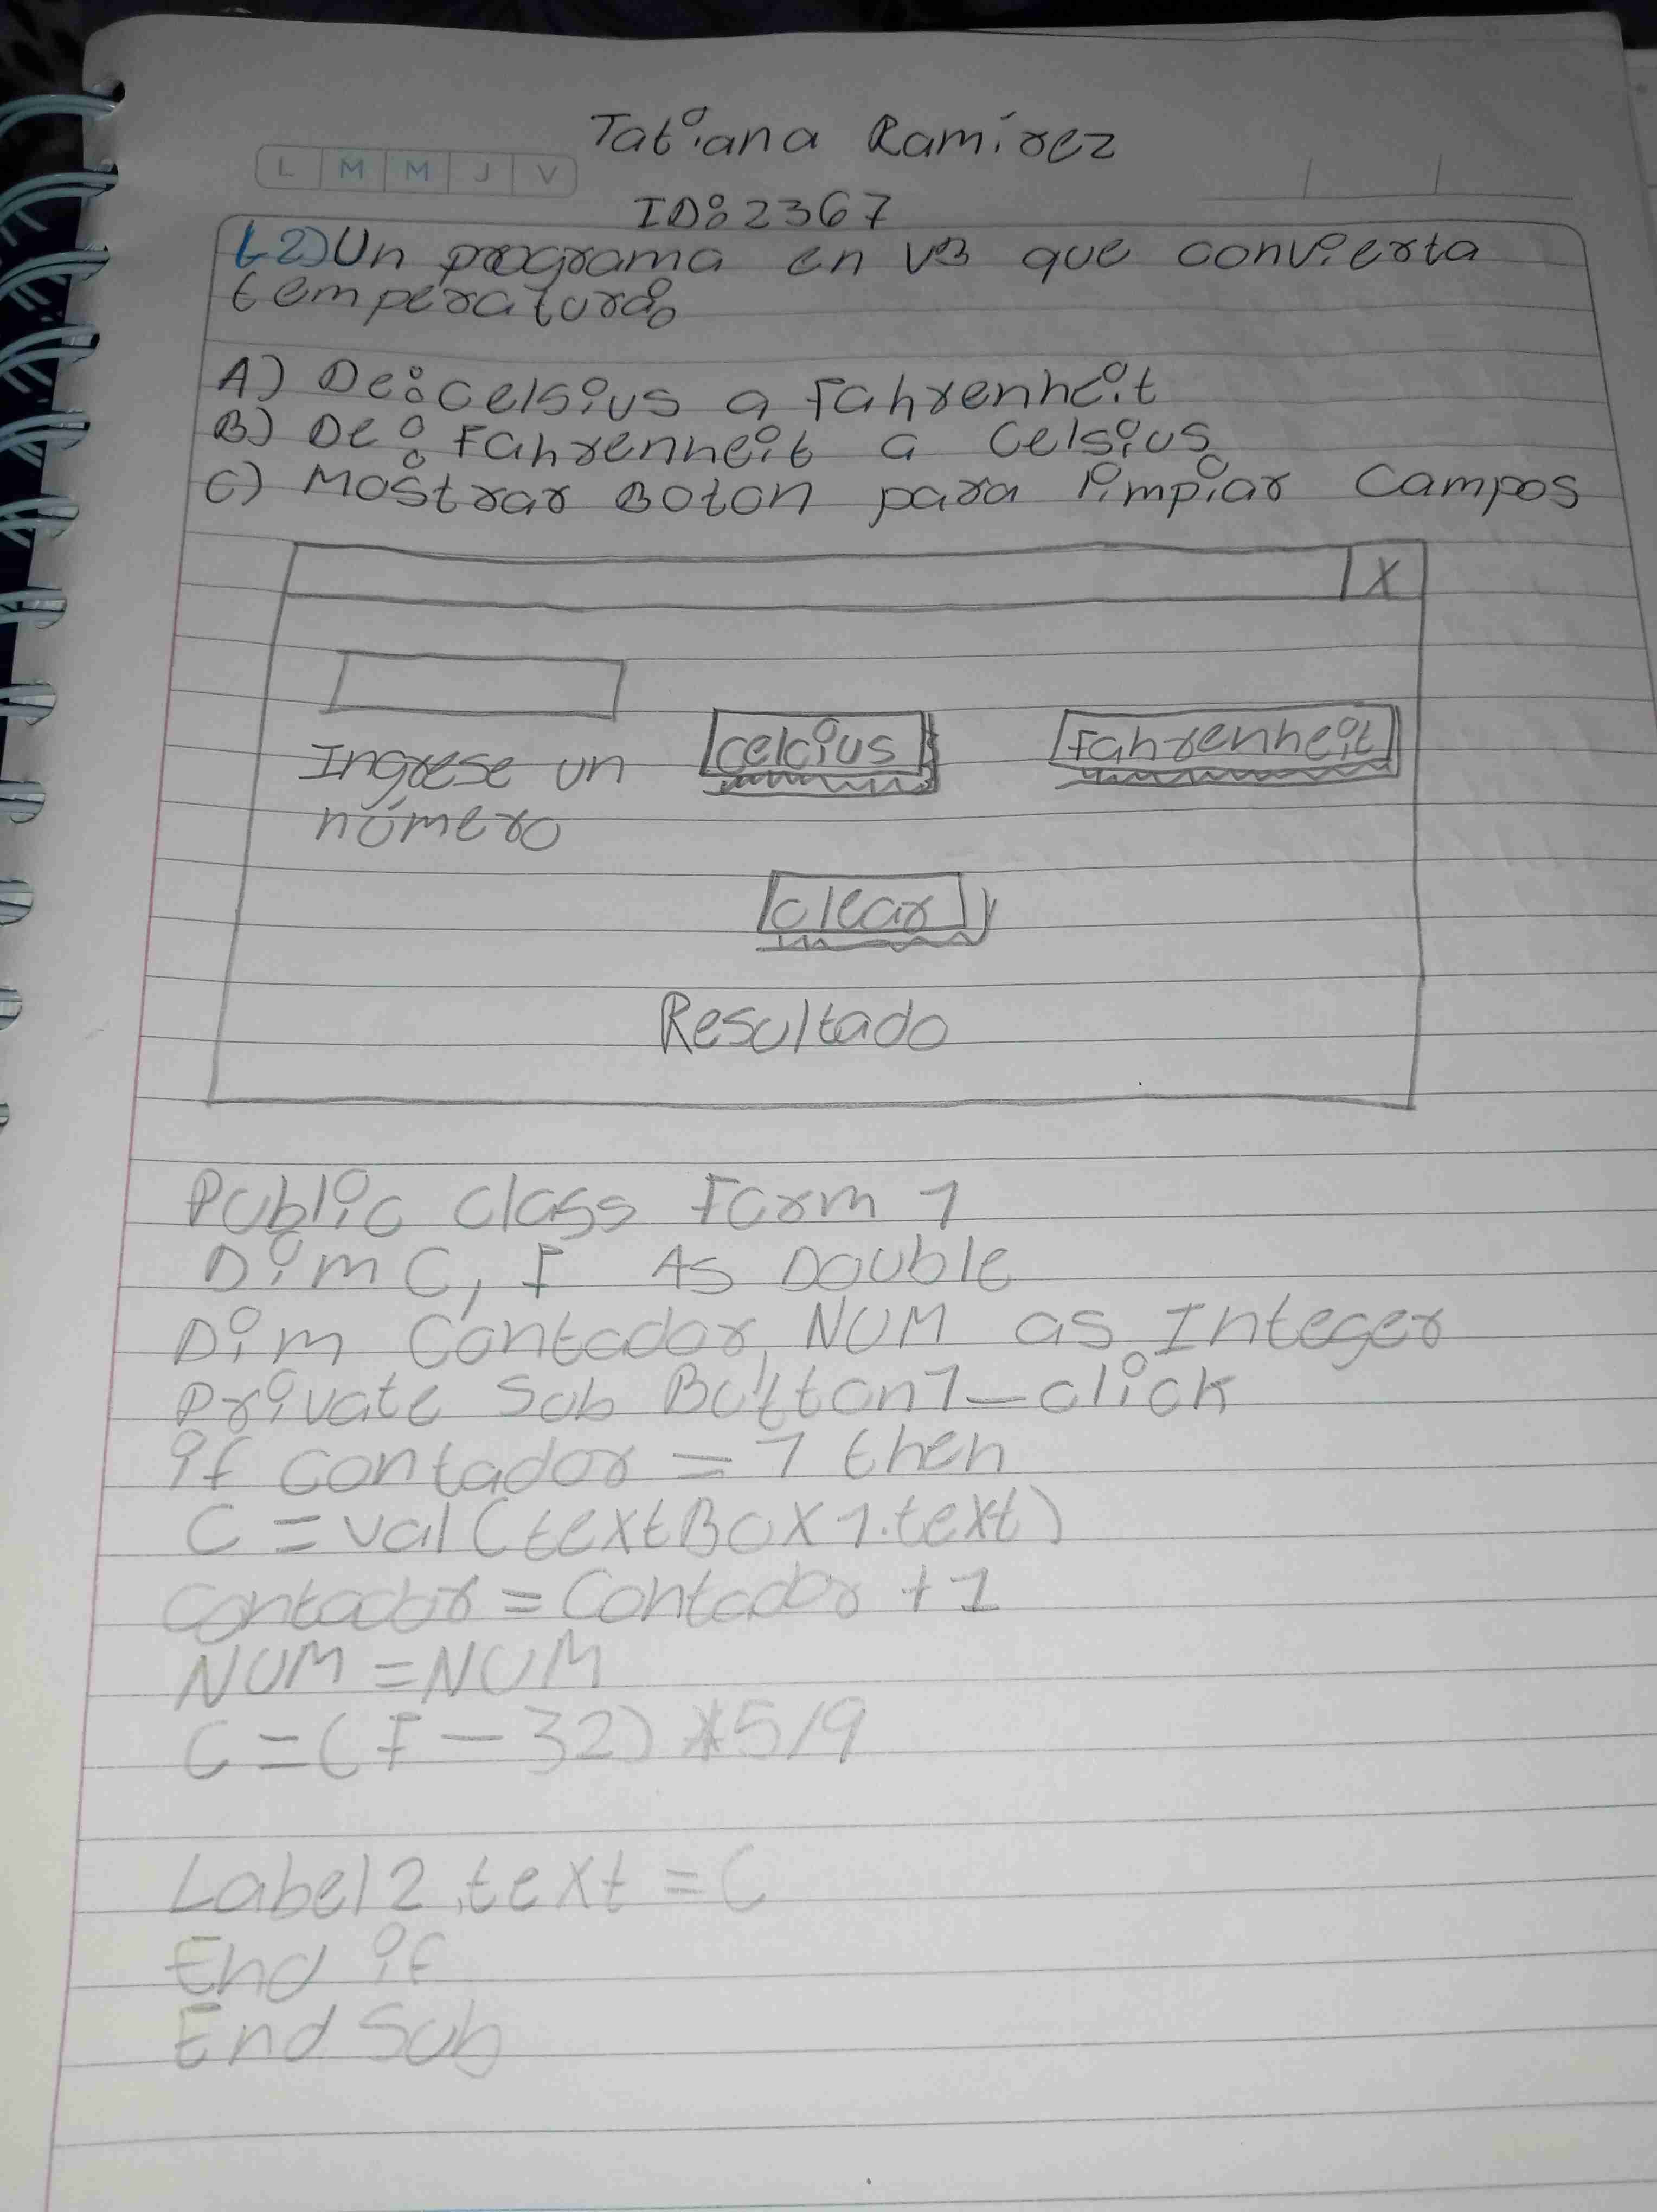 Tatiana Ramírez
L M M J V
ID: 2367
2) Un programa en VB que convierta
temperatura:
A) De: Celsius a Fahrenheit
B) De: Fahrenheit a Celsius
C) Mostrar Boton para limpiar Campos
X
celcius Fahrenheit
Ingrese un
número
clear
Resultado
Public Class Form 1
Dim C, F As Double
Dim Contador, NUM as Integer
Private Sub Button1_click
if contador = 1 then
C = val (textBox1.text)
Contador = Contador + 1
NUM = NUM
C = (F - 32) * 5/9
Label2.text = C
End if
End Sub